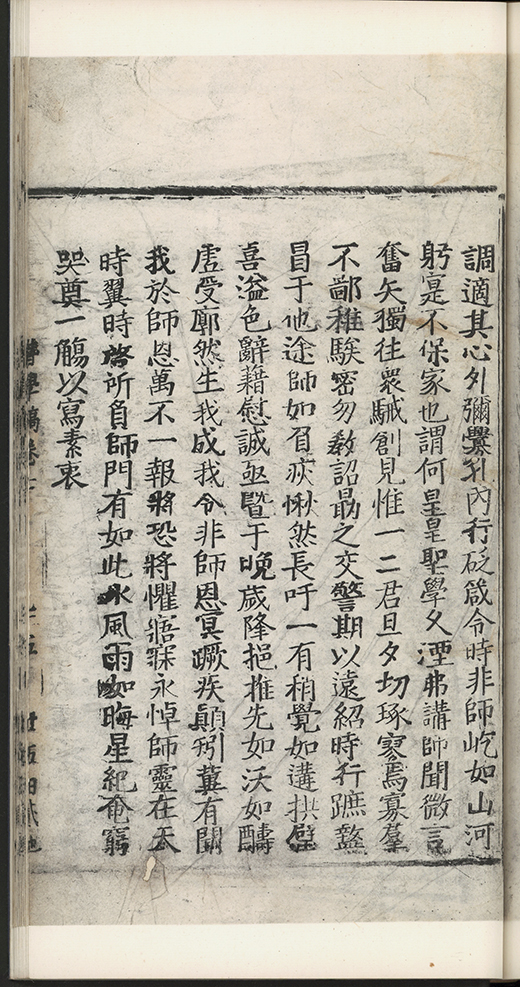 調適其心外彌釁孔內行砭箴令時非師屹如山河
躬寔不保家也謂何皇皇聖學久湮弗講師聞微言
奮矢獨往衆駴創見惟一二君旦夕切琢寥焉寡羣
不鄙稚騃密勿敎詔勗之交警期以遠紹時行蹠盭
冒于他途師如眉疢愀然長吁一有稍覺如遘拱璧
喜溢色辭藉慰誠亟暨于晚歲降挹推先如沃如醻
虗受廓然生我成我令非師恩冥蹶疾顛矧冀有聞
我於師恩萬不一報將恐將懼寤寐永悼師靈在天
時翼時啓所負師門有如此水風雨如晦星紀奄窮
哭奠一觴以寫素衷
學稿卷